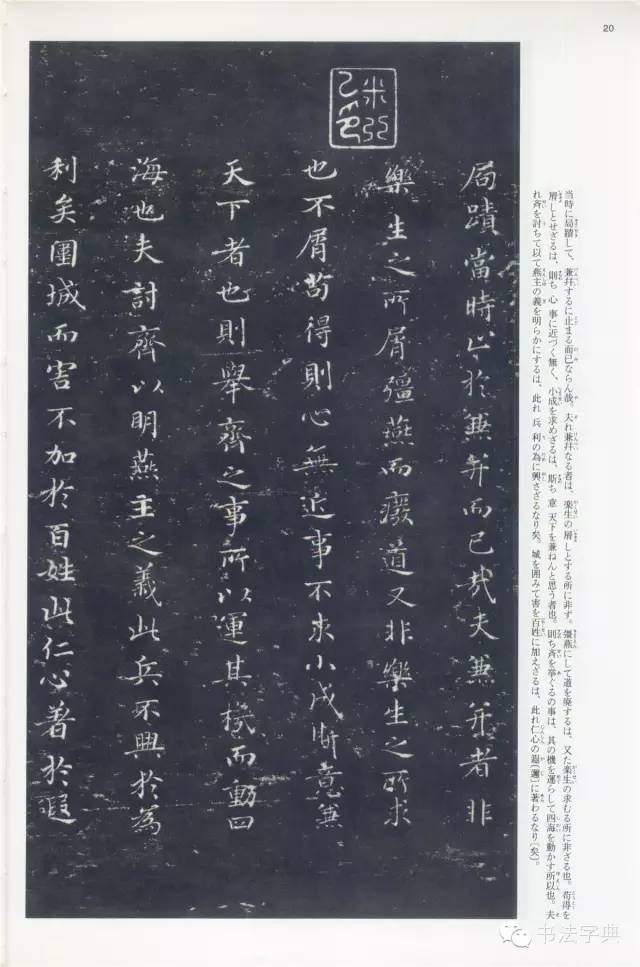 20
当時に局蹟して、兼幷するに止まる而已ならん哉。夫れ兼幷なる者は、楽生の屑しとする所に非ず。彊燕にして道を廃するは、又た楽生の求むる所に非ざる也。苟得を
屑しとせざるは、則ち 心 事に近づく無く、小成を求めざるは、斯ち 意 天下を兼ねんと思う者也。則ち斉を挙ぐるの事は、其の機を運らして四海を動かす所以也。夫
れ斉を討ちて以て燕主の義を明らかにするは、此れ 兵 利の為に興さざるなり矣。城を囲みて害を百姓に加えざるは、此れ仁心の遐〔邇〕に著わるなり〔矣〕。
局蹟當時止於兼并而已哉夫兼并者非
樂生之所屑彊燕而癈道又非樂生之所求
也不屑苟得則心無近事不求小成斯意兼
天下者也則舉齊之事所以運其機而動四
海也夫討齊以明燕主之義此兵不興於為
利矣圍城而害不加於百姓此仁心著於遐
书法字典